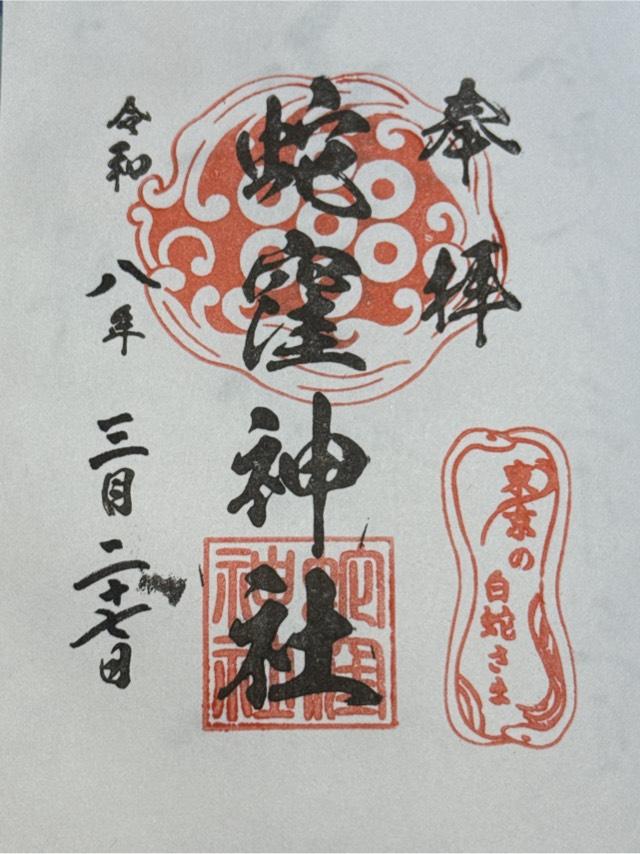 奉拝
東京の
白蛇さま
蛇窪神社
蛇窪
神社
令和八年三月二十七日